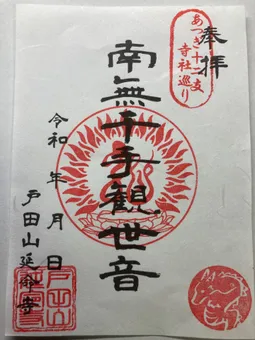 奉拝
あつぎ十二支
寺社巡り
南無千手観世音
令和 年 月 日
戸田山延命寺